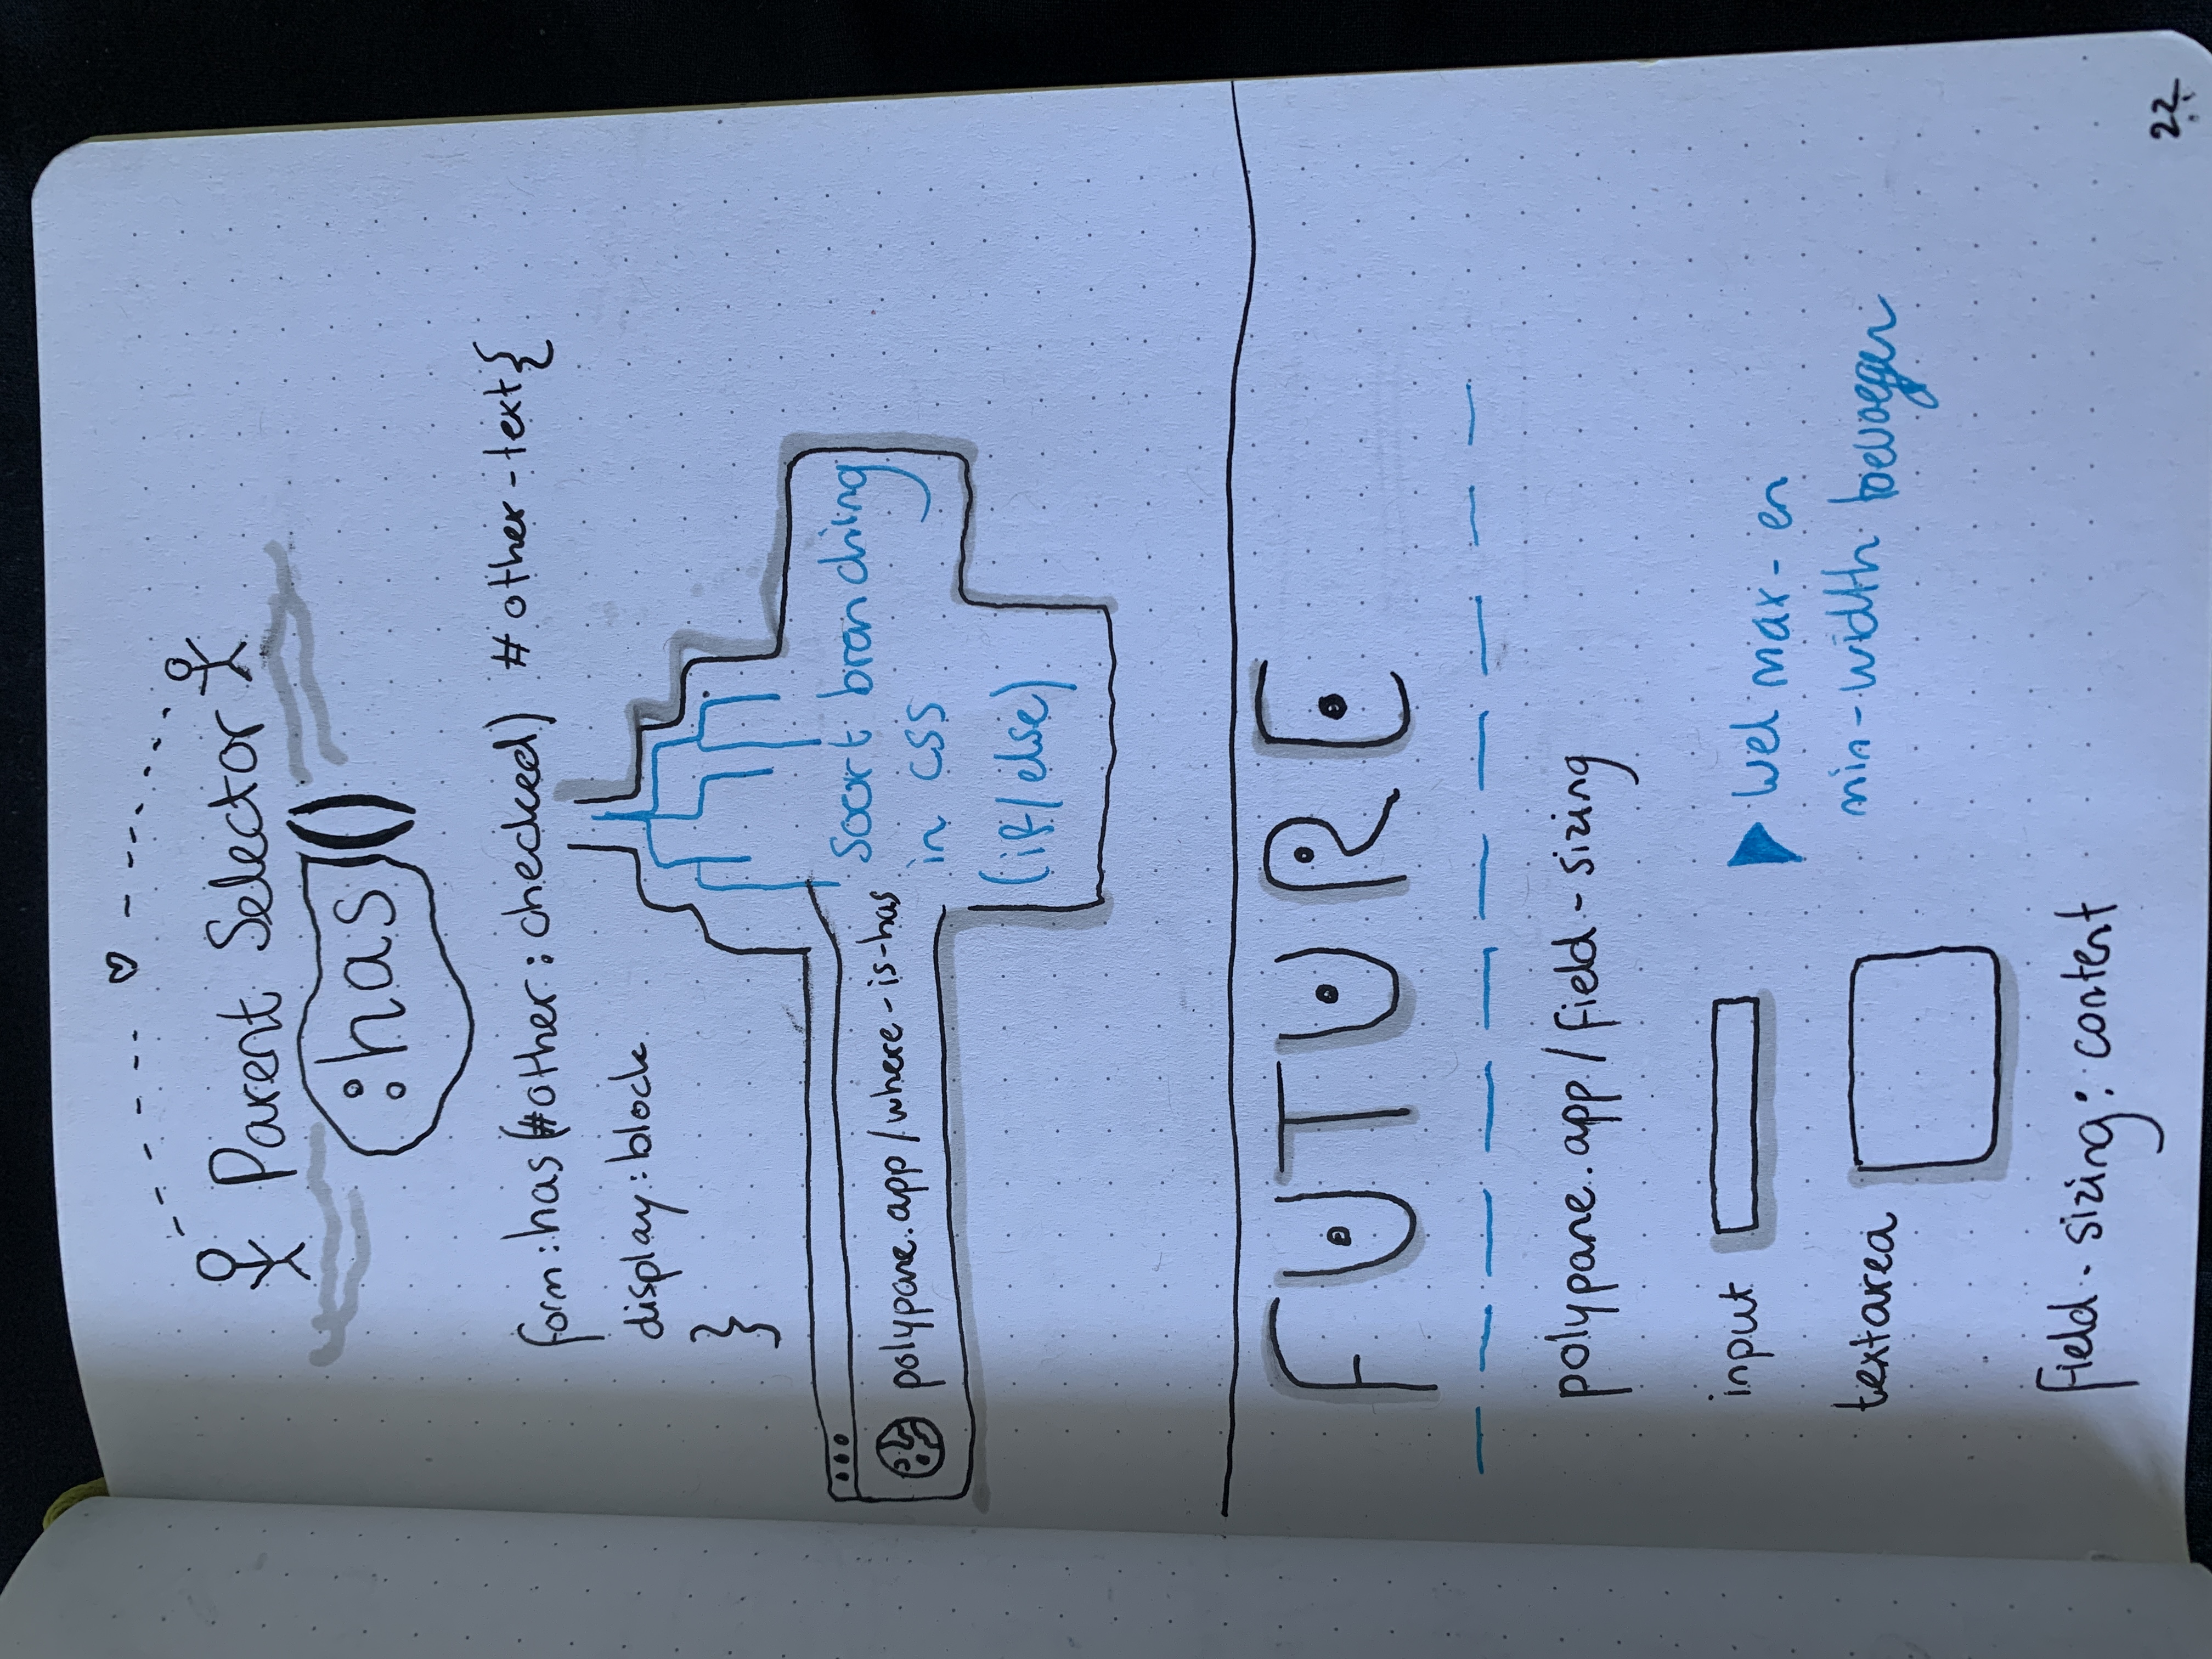 Parent Selector
:has()
form:has(#other:checked) #other-text{
display:block
}
polypane.app/where-is-has
soort branching
in css
(if/else)
FUTURE
polypane.app/field-sizing
input
wel max- en
min-width toevoegen
textarea
field-sizing: content
22